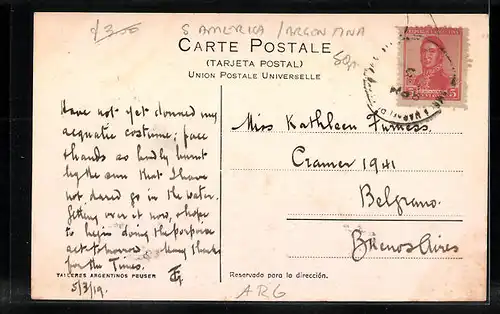 £3.00
S AMERICA / ARGENTINA
CARTE POSTALE
(TARJETA POSTAL)
UNION POSTALE UNIVERSELLE
60p
5
Have not yet donned my
aquatic costume; face
& hands so badly burnt
by the sun that I have
not dared go in the water.
Getting over it now, & hope
to begin doing the porpoise
act tomorrow. Many thanks
for the Times.
TALLERES ARGENTINOS PEUSER
5/3/19.
Miss Kathleen Furness
Cramer 1941
Belgrano.
Buenos Aires
Reservado para la dirección.
ARG